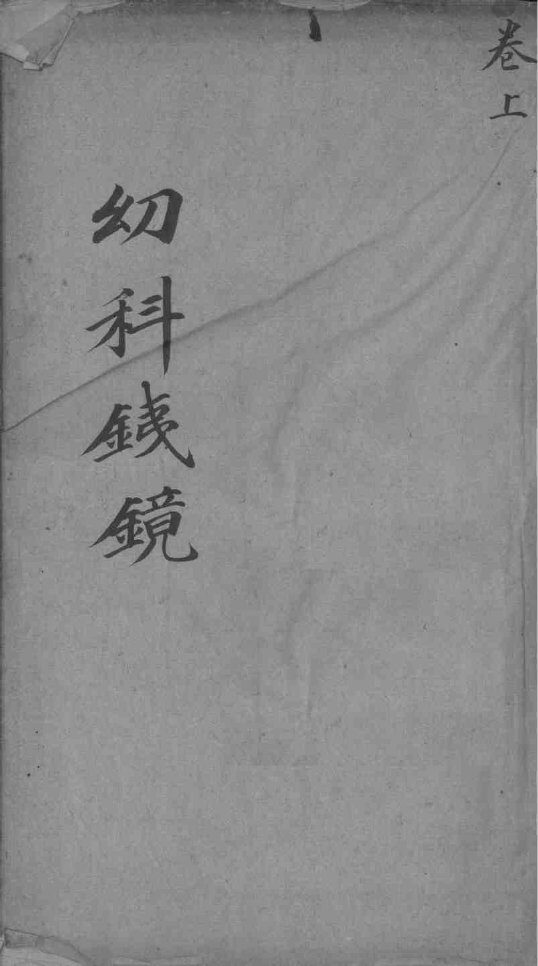 卷上
幼科銕鏡